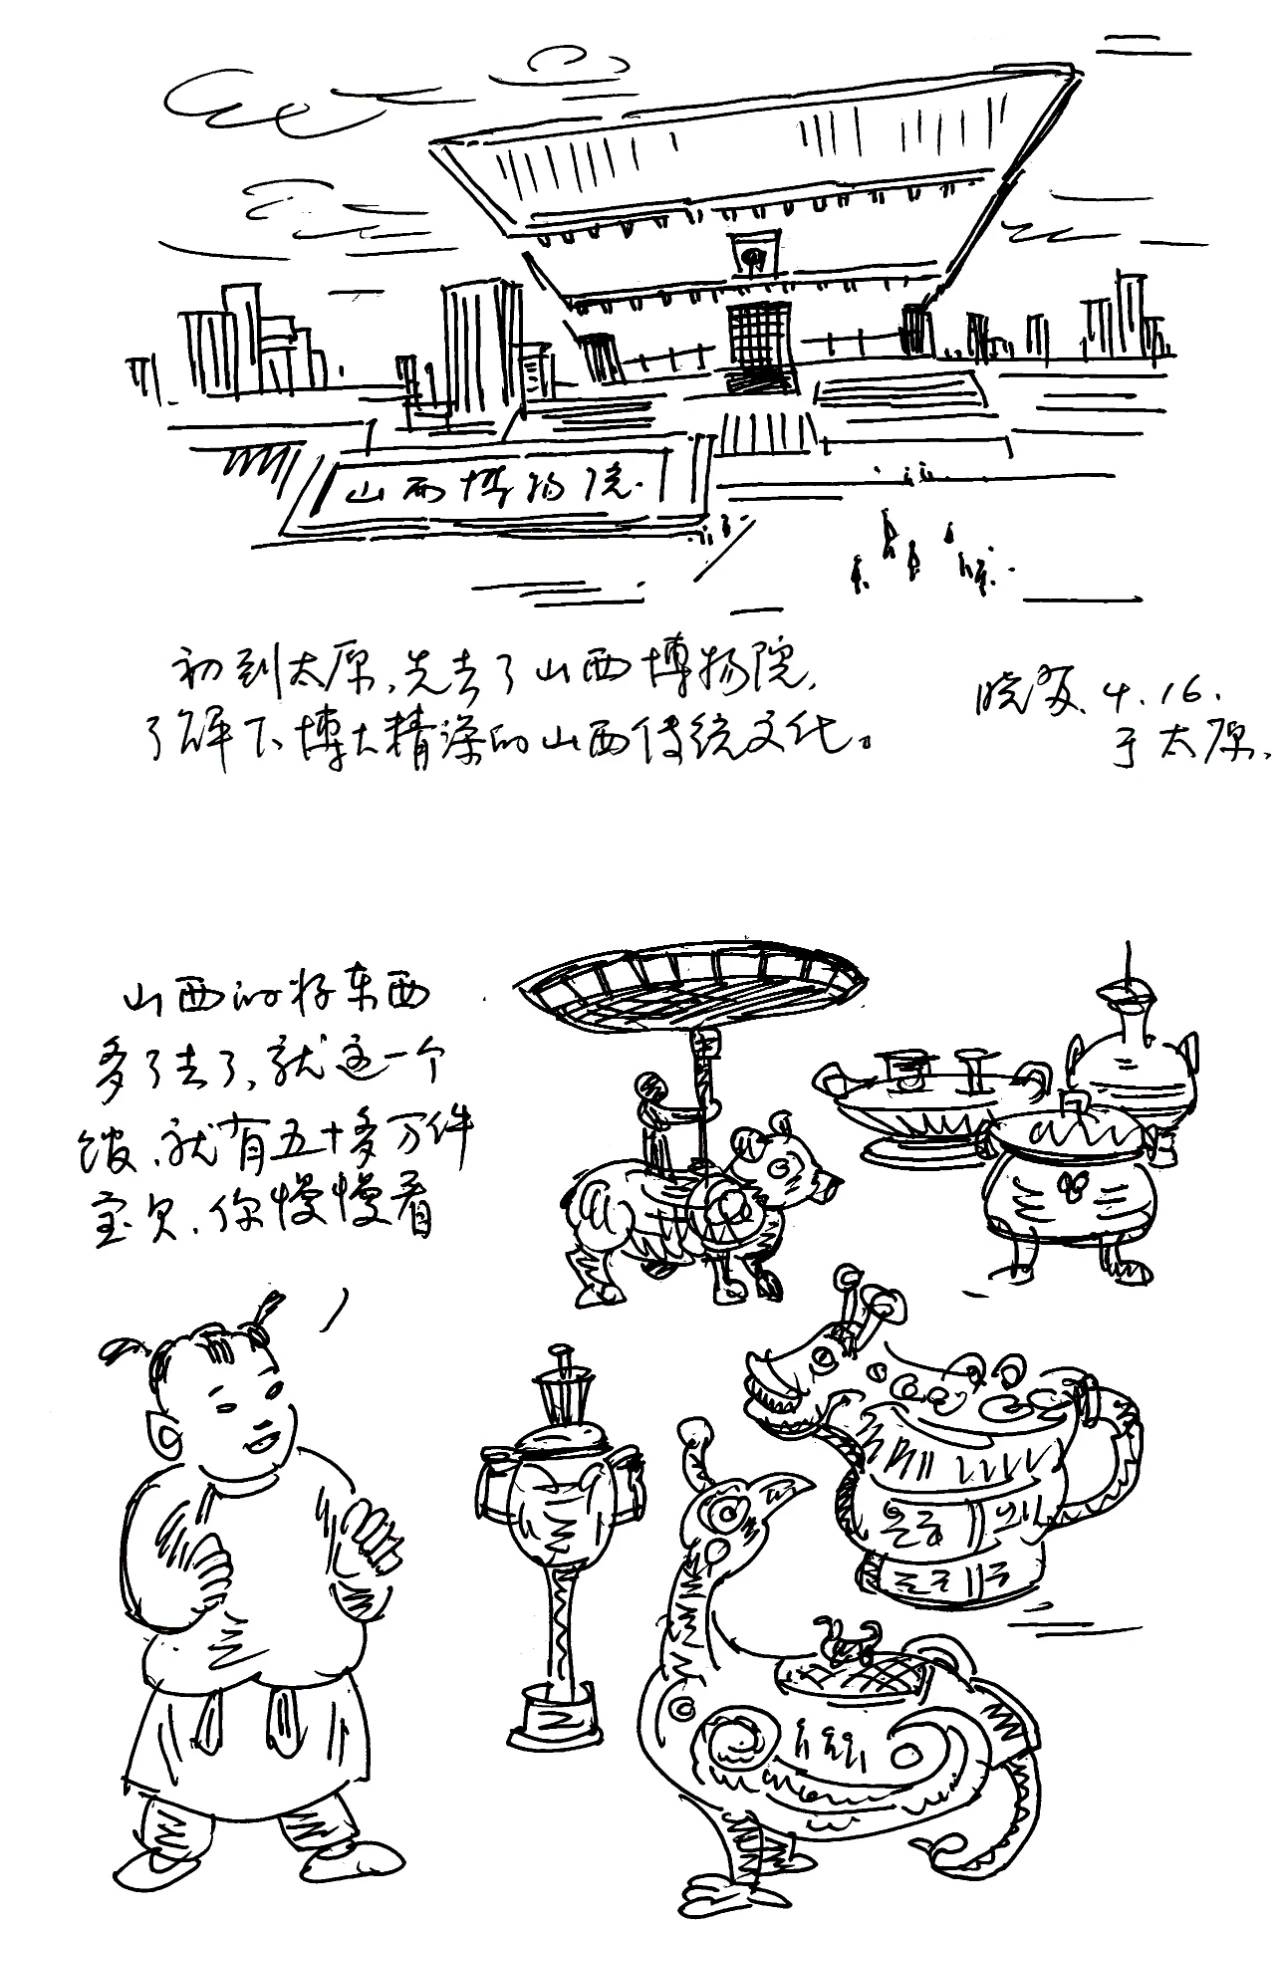 山西博物院
初到太原,先去了山西博物院,
了解下博大精深的山西传统文化。
4.16.
于太原.
山西的好东西
多了去了,就这一个
馆,就有五十多万件
宝贝,你慢慢看